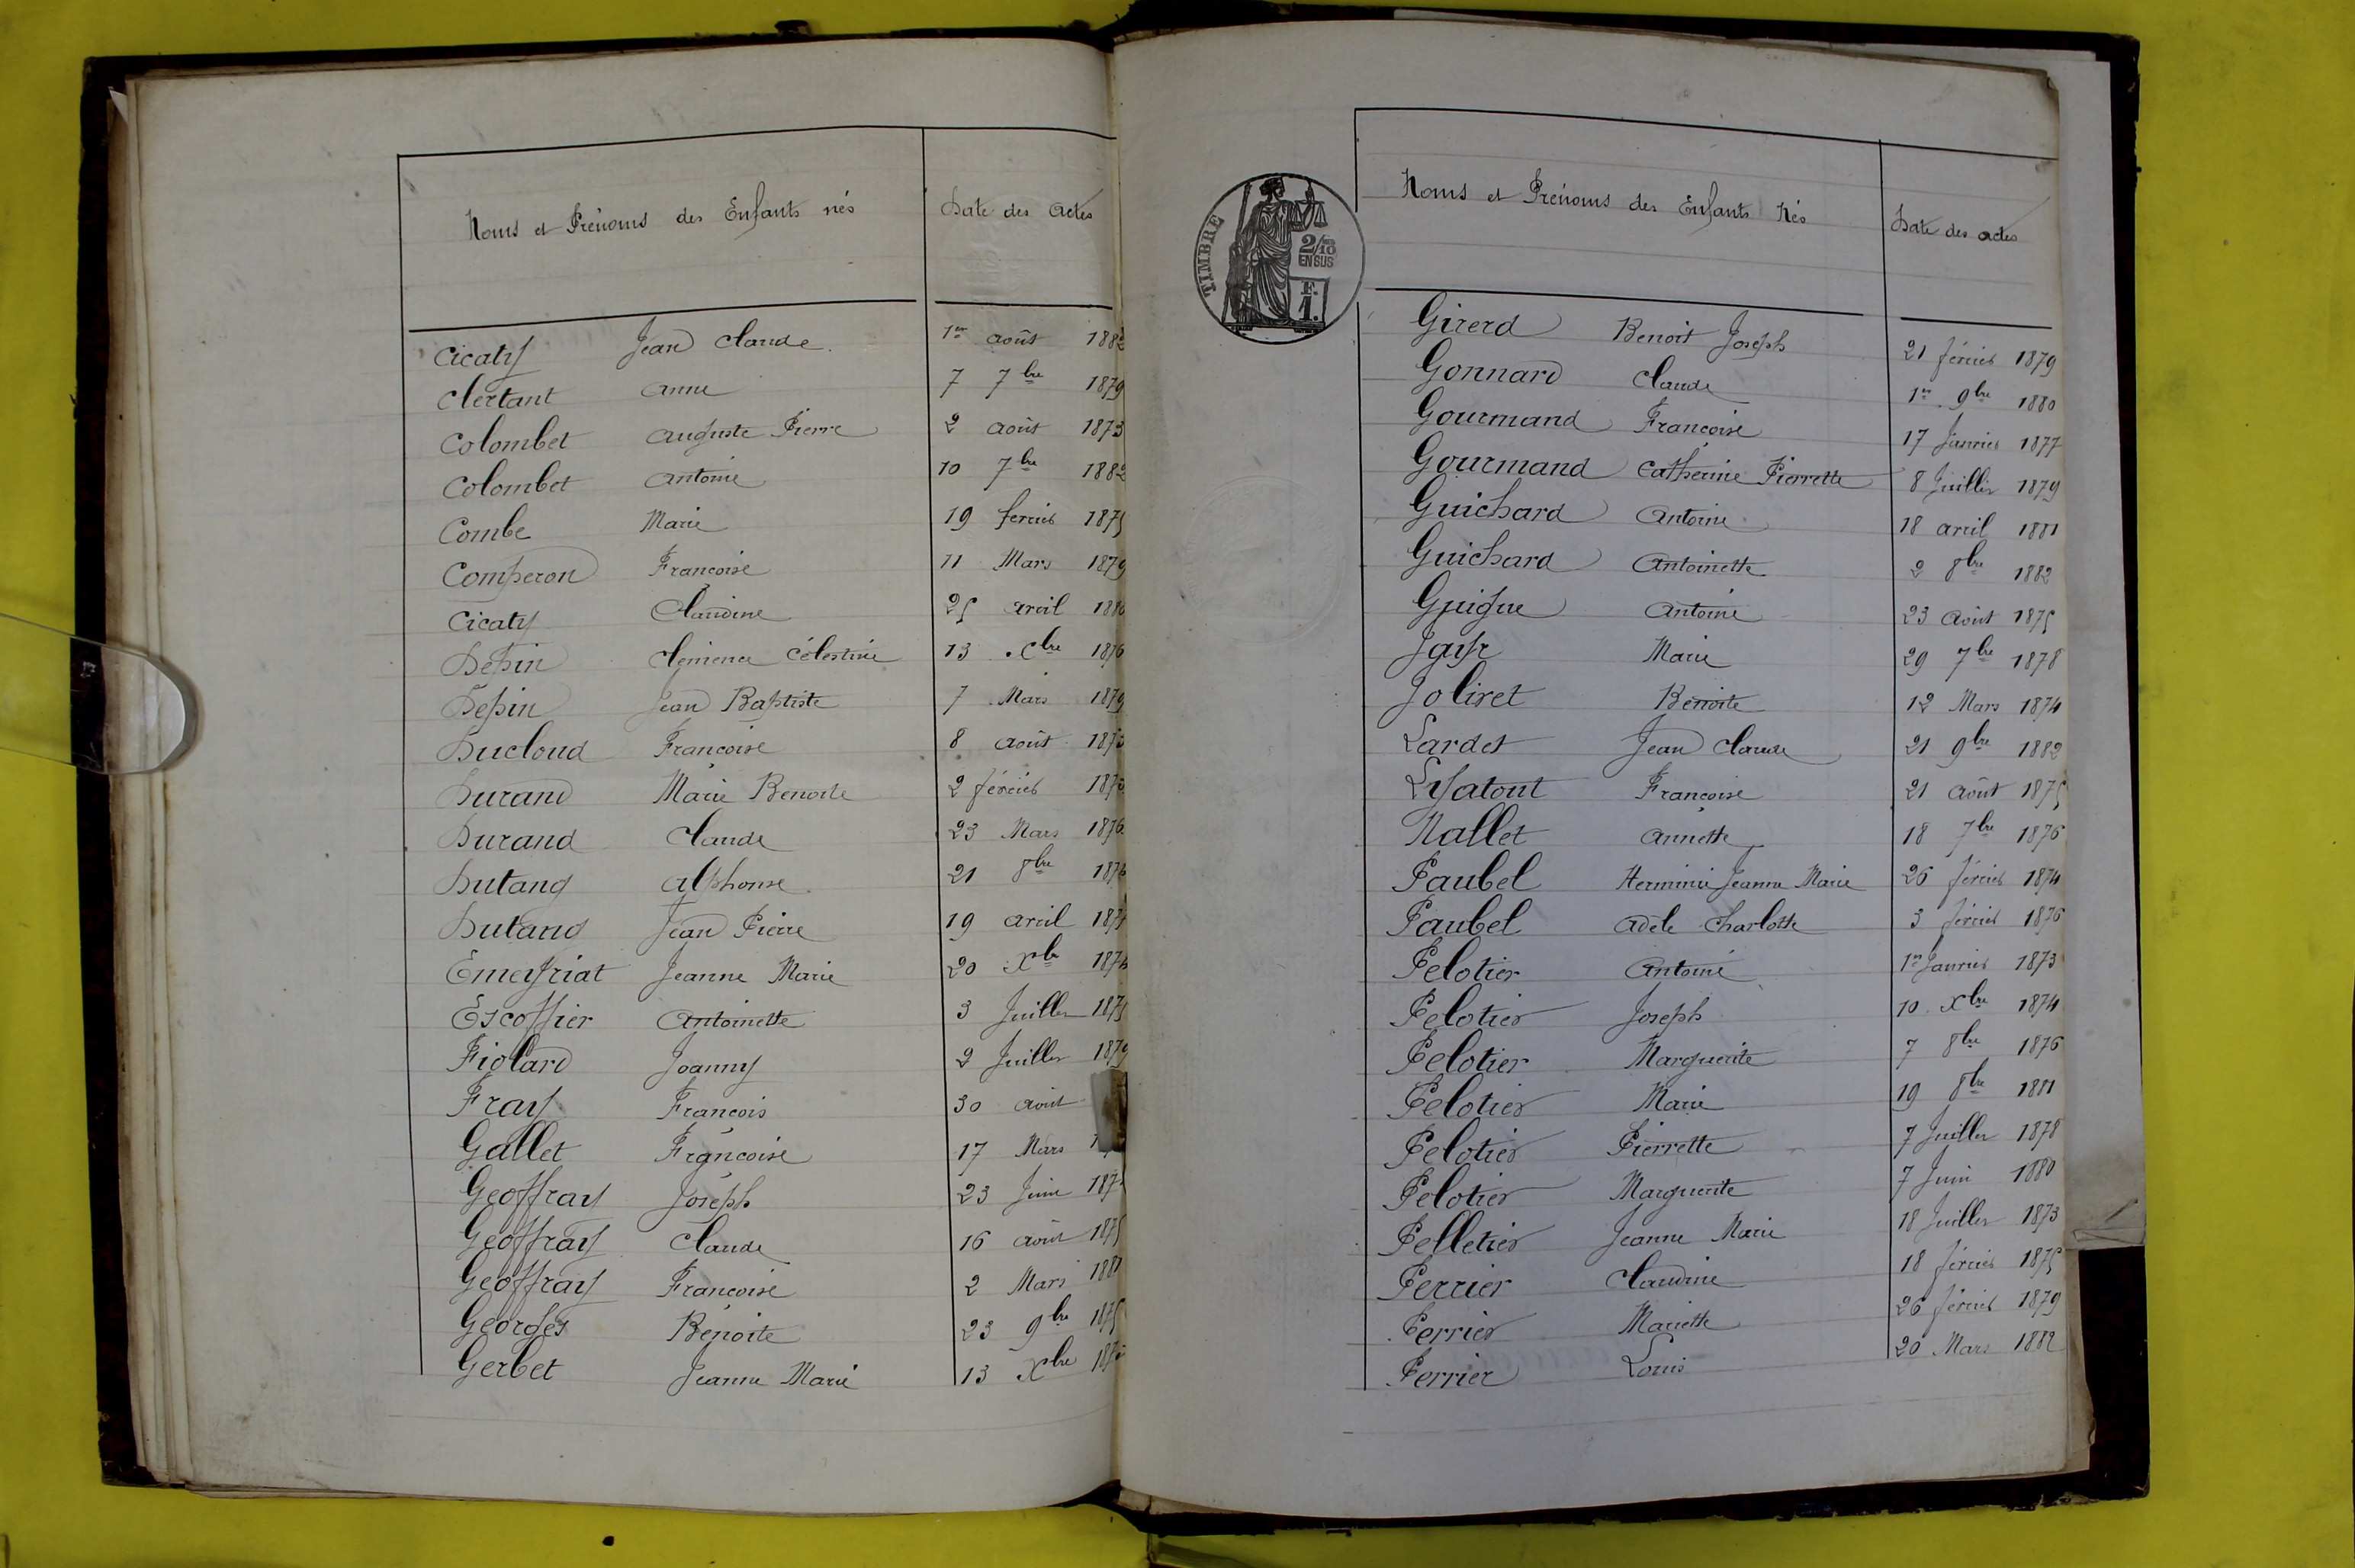 Noms et Prénoms des Enfants nés Date des Actes
Cicaty Jean Claude 1er août 1882
Clertant Anne 7 7bre 1879
Colombet Auguste Pierre 2 août 1873
Colombet Antoine 10 7bre 1882
Combe Marie 19 fevrier 1875
Comperon Françoise 11 Mars 1879
Cicaty Claudine 25 avril 1880
Depin Clémence Célestine 13 Xbre 1876
Depin Jean Baptiste 7 Mars 1879
Ducloud Françoise 8 août
Durand Marie Benoite 2 février
Durand Claude 23 Mars 1876
Dutang Alphonse 21 8bre
Dutang Jean Pierre 19 avril
Emeyriat Jeanne Marie 20 Xbre 1874
Escoffier Antoinette 3 Juillet 1875
Fiolard Joanny 2 Juillet 1879
Fray François 30 août
Gallet Françoise 17 Mars
Geoffray Joseph 23 Juin
Geoffray Claude 16 août 1875
Geoffray Françoise 2 Mars 1881
Georges Benoite 23 9bre 1875
Gerbet Jeanne Marie 13 Xbre
TIMBRE
2/10
EN SUS
F.
1.
Noms et Prénoms des Enfants Nés Date des actes
Girerd Benoit Joseph 21 février 1879
Gonnard Claude 1er 9bre 1880
Gourmand Françoise 17 Janvier 1877
Gourmand Catherine Pierrette 8 Juillet 1879
Guichard Antoine 18 avril 1881
Guichard Antoinette 2 8bre 1882
Guigue Antoine 23 août 1875
Jayr Marie 29 7bre 1878
Joliret Benoite 12 Mars 1874
Lardet Jean Claude 21 9bre 1882
Lyatout Françoise 21 août 1875
Nallet Annette 18 7bre 1876
Paubel Herminie Jeanne Marie 26 février 1874
Paubel Adèle Charlotte 3 février 1876
Pelotier Antoine 1er Janvier 1873
Pelotier Joseph 10 Xbre 1874
Pelotier Marguerite 7 8bre 1876
Pelotier Marie 19 8bre 1881
Pelotier Pierrette 7 Juillet 1878
Pelotier Marguerite 7 Juin 1880
Pelletier Jeanne Marie 18 Juillet 1873
Perrier Claudine 18 février 1875
Perrier Mariette 26 février 1879
Perrier Louis 20 Mars 1882